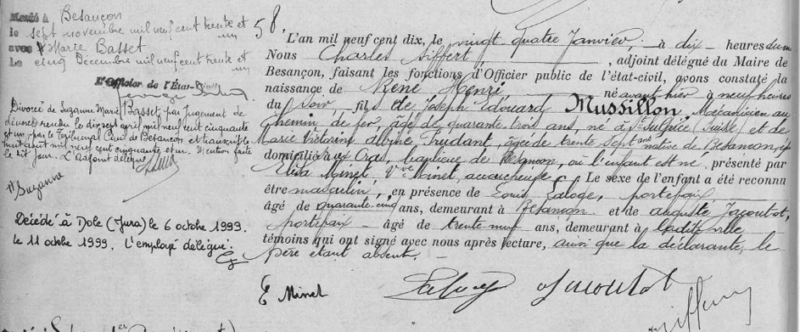 Marié à Besançon
le sept novembre mil neuf cent trente et un
avec Marie Basset
le cinq Décembre mil neuf cent trente et un
L'Officier de l'État-Civil
Divorcé de Suzanne Marie Basset par jugement de
rendu le dix sept avril mil neuf cent cinquante
et un par le Tribunal Civil de Besançon et transcrit le
huit août mil neuf cent cinquante et un. Mention faite
le dit jour. L'Adjoint délégué
Suzanne
Décédé à Dole (Jura) le 6 octobre 1999
le 11 octobre 1999. L'employé délégué.
58
L'an mil neuf cent dix, le vingt quatre Janvier, à dix heures du
Nous Charles Siffert, adjoint délégué du Maire de
Besançon, faisant les fonctions d'Officier public de l'état-civil, avons constaté la
naissance de René Henri né avant hier à neuf heures
du soir, fils de Joseph Edouard Mussillon, Mécanicien au
Chemin de fer, âgé de quarante trois ans, né à St Sulpice (Suisse) et de
Marie Victorine Trudant, âgée de trente sept ans native de Besançon,
domiciliés à banlieue de Besançon, où l'enfant est né, présenté par
Elisa Minet Vve Minet, accoucheuse. Le sexe de l'enfant a été reconnu
être masculin, en présence de Louis Laloge, portefaix
âgé de quarante cinq ans, demeurant à Besançon et de Auguste Jacoutot,
portefaix âgé de trente neuf ans, demeurant à ladite ville
témoins qui ont signé avec nous après lecture, ainsi que la déclarante, le
père étant absent.
E Minet Laloge Jacoutot
Siffert